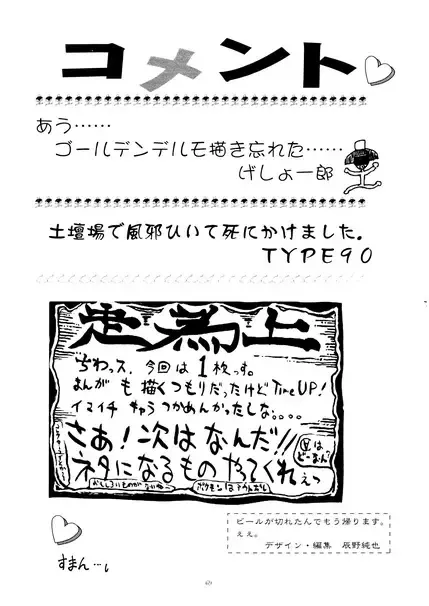 コメント
あう……
ゴールデンデルモ描き忘れた……
げしょ一郎
土壇場で風邪ひいて死にかけました。
TYPE90
走為上
ちわっス、今回は1枚っす。
まんがも描くつもりだったけどTime UP!
イマイチ キャラつかめんかったしな。。。。
さあ!次はなんだ!!
ネタになるものやってくれぇっ
すまん…
ビールが切れたんでもう帰ります。
ええ。
デザイン・編集 辰野純也